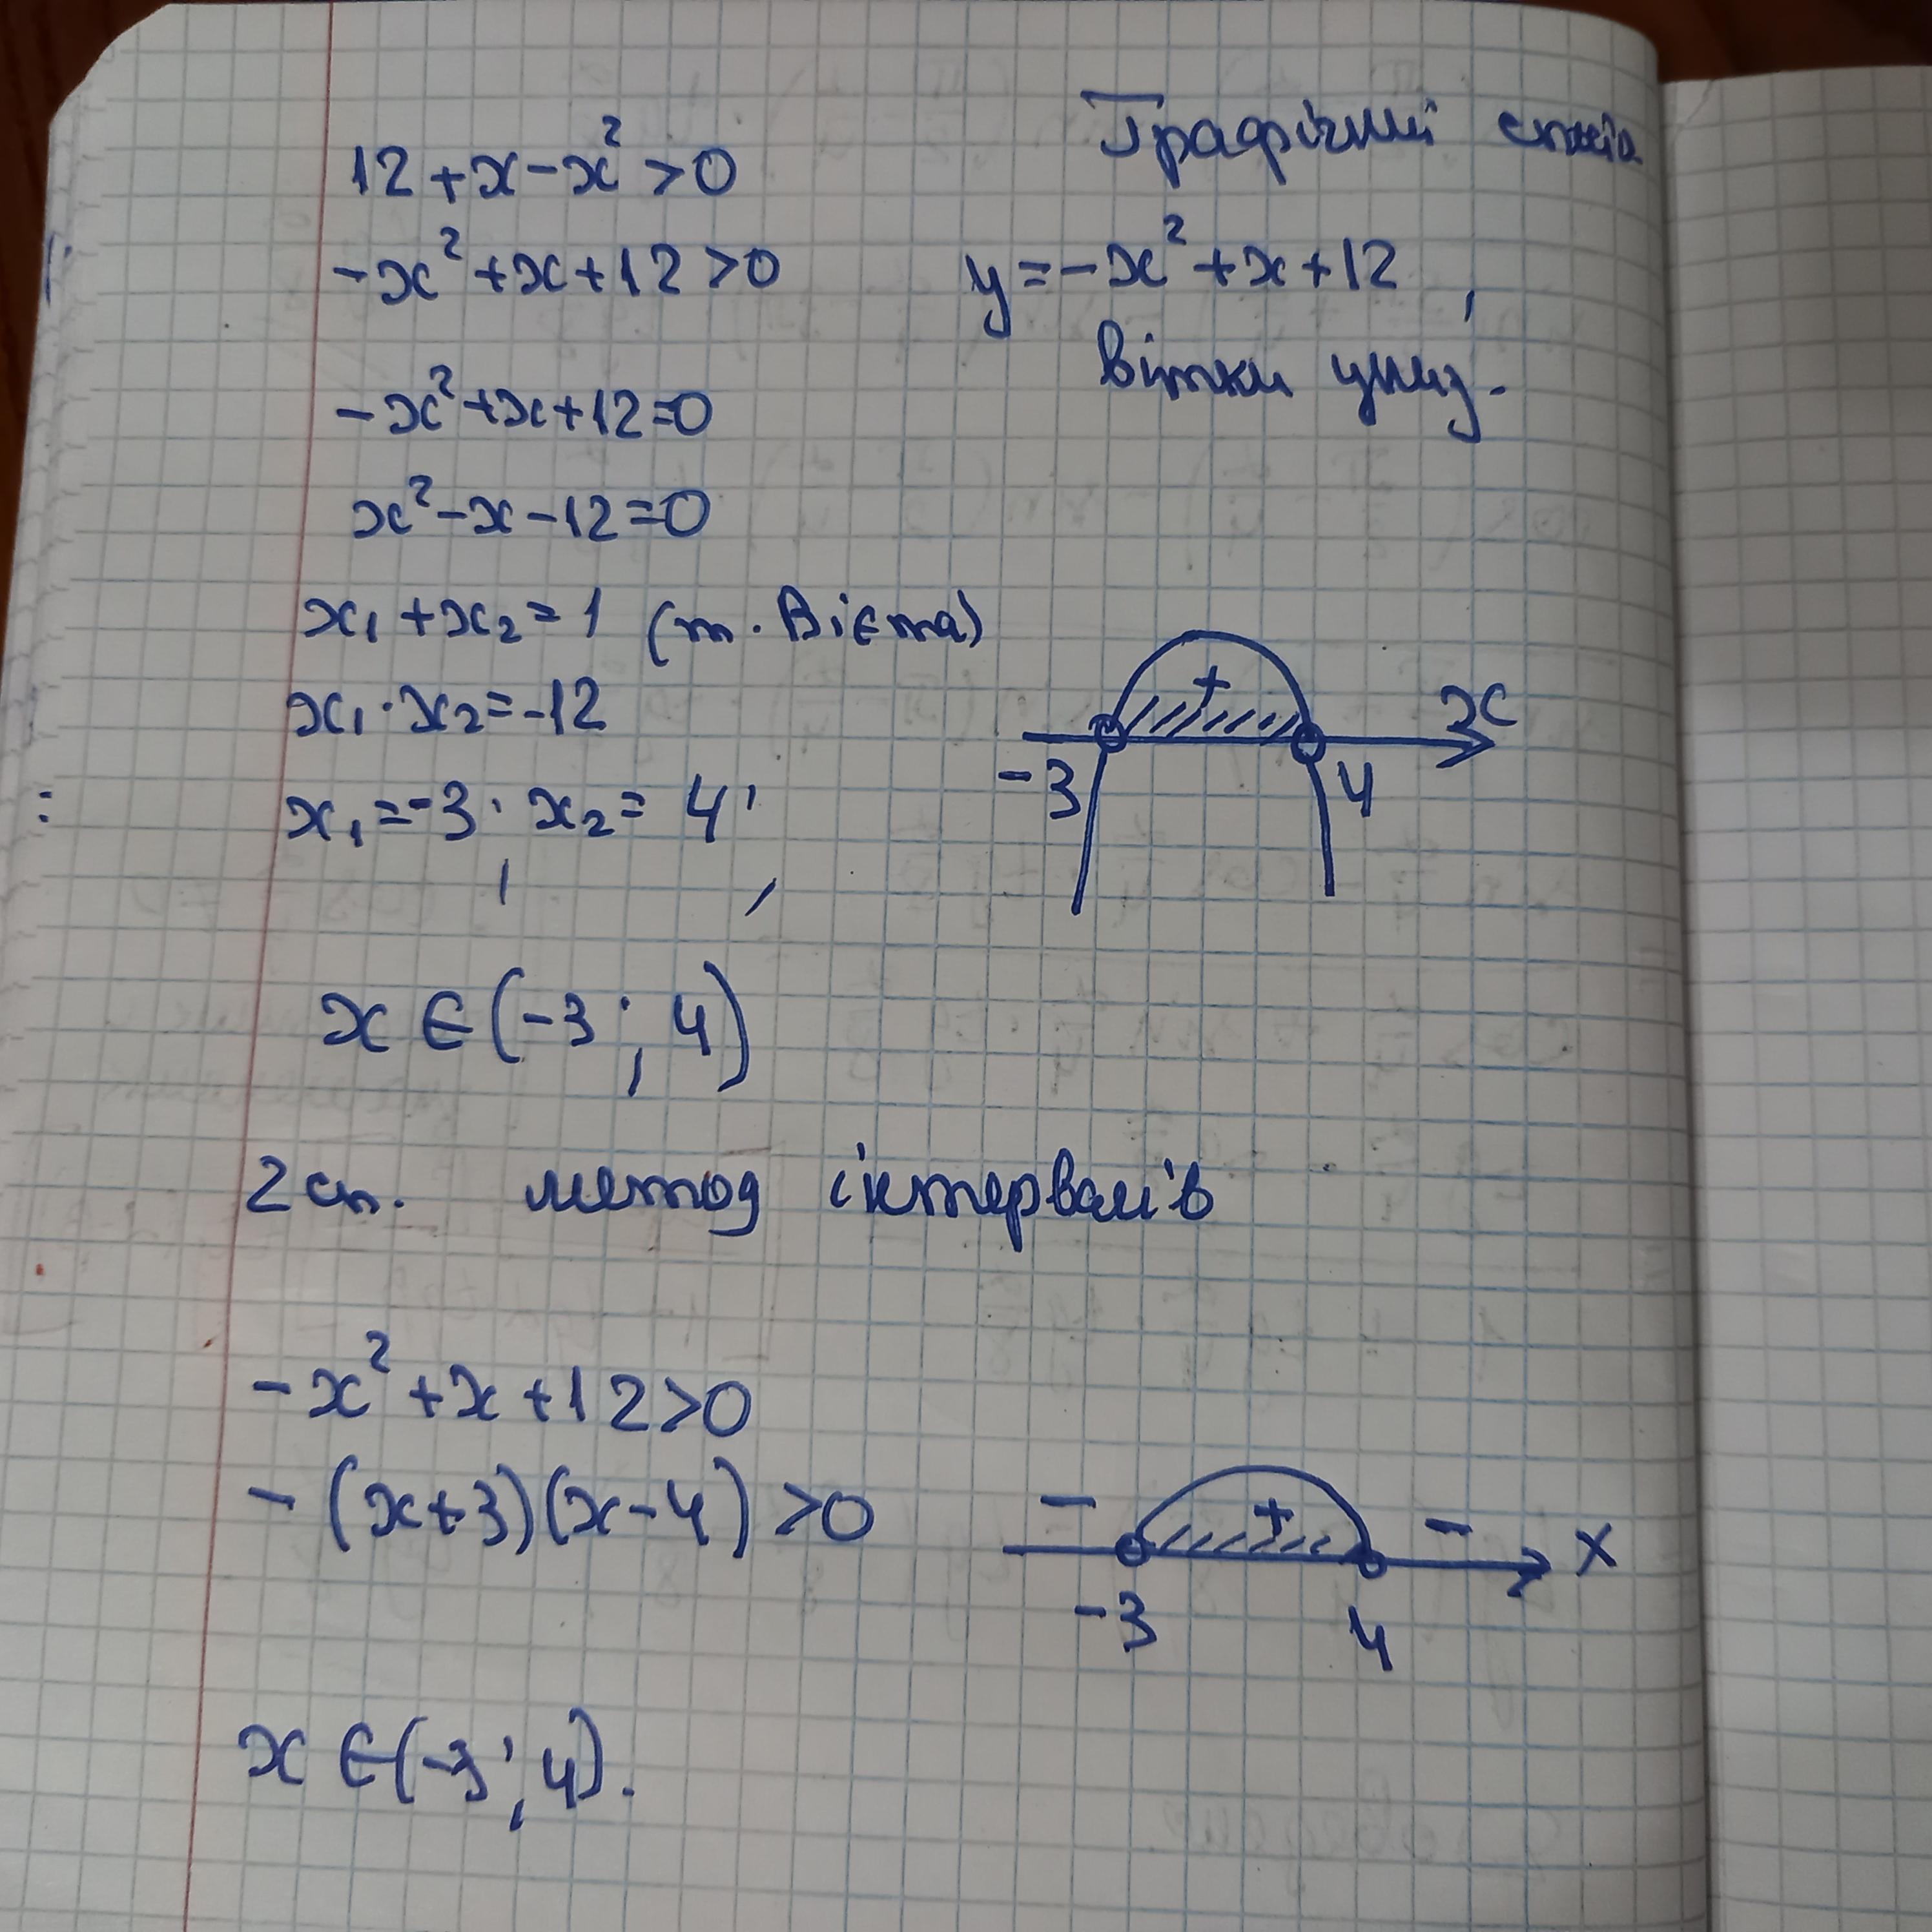 12 + x - x² > 0
Графічний спосіб
-x² + x + 12 > 0
y = -x² + x + 12 ,
вітки униз.
-x² + x + 12 = 0
x² - x - 12 = 0
x₁ + x₂ = 1 (т. Вієта)
x₁ · x₂ = -12
x₁ = -3 ; x₂ = 4 ;
+
x
-3 4
x ∈ (-3 ; 4)
2 сп. метод інтервалів
-x² + x + 12 > 0
- (x+3)(x-4) > 0
- + - x
-3 4
x ∈ (-3 ; 4).